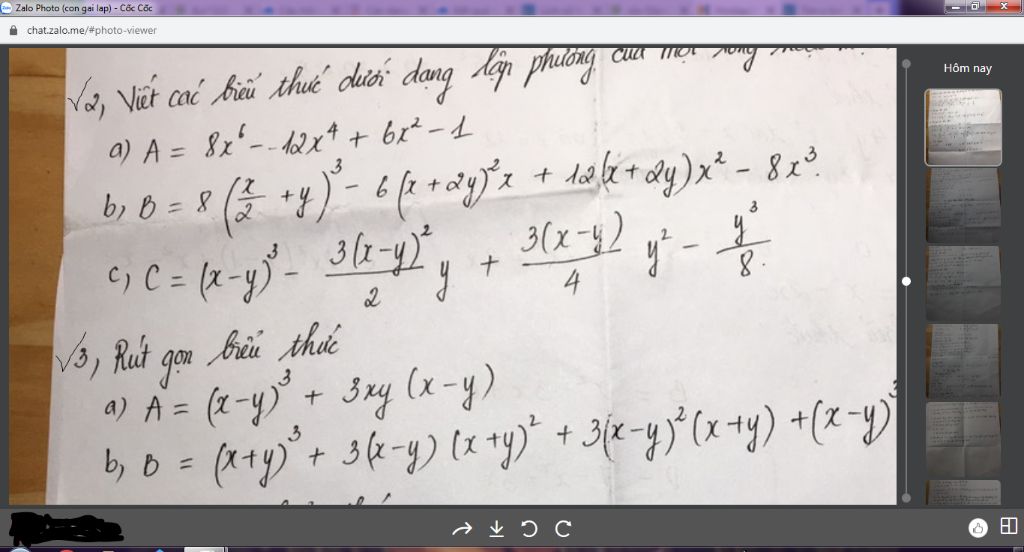 Zalo Photo (con gai lap) - Cốc Cốc
chat.zalo.me/#photo-viewer
Hôm nay
√2, Viết các biểu thức dưới dạng lập phương của một
a) A = 8x⁶ - 12x⁴ + 6x² - 1
b, B = 8 (x/2 + y)³ - 6 (x + 2y)² x + 12 (x + 2y) x² - 8x³.
c, C = (x-y)³ - 3(x-y)²/2 y + 3(x-y)/4 y² - y³/8.
√3, Rút gọn biểu thức
a) A = (x-y)³ + 3xy (x-y)
b, B = (x+y)³ + 3(x-y) (x+y)² + 3(x-y)² (x+y) + (x-y)³